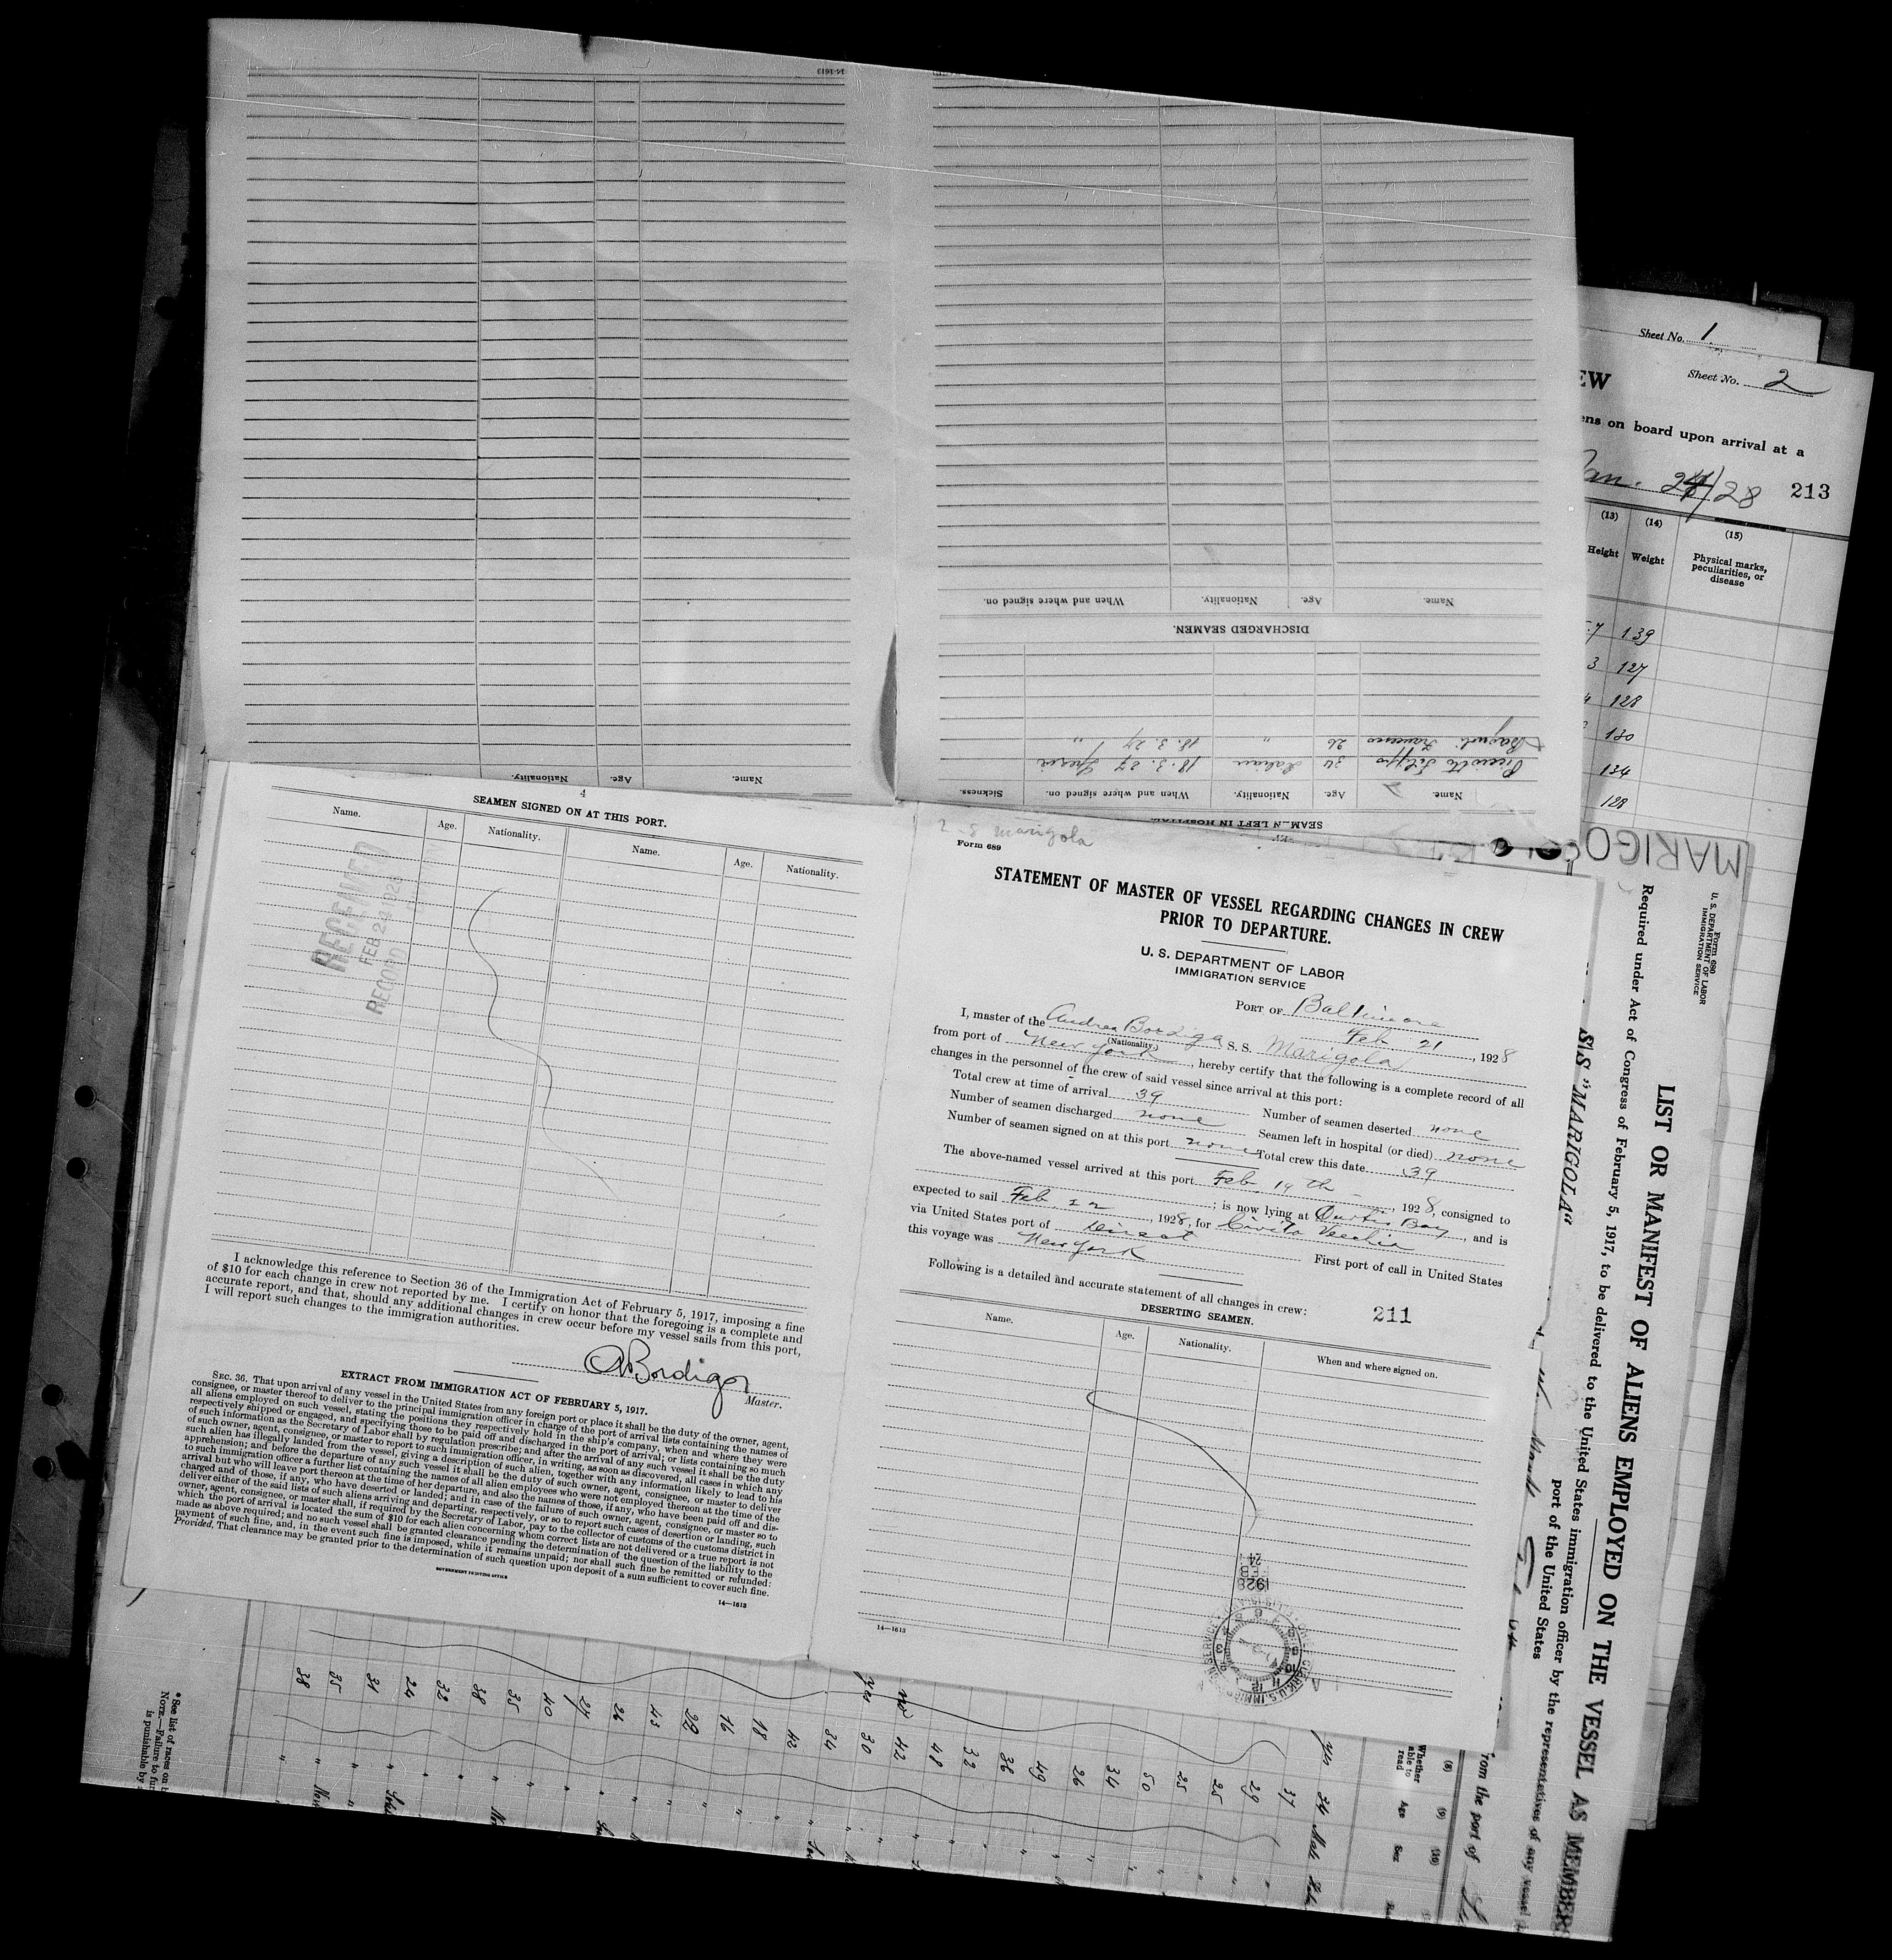 14-1613
Name. Age. Nationality. When and where signed on.
DISCHARGED SEAMEN.
Bagnoli Francesco 26 " 18.3.27 "
Filippo 34 Italian 18.3.27 Spezia
Name. Age. Nationality. When and where signed on. Sickness.
SEAMEN LEFT IN HOSPITAL
Name. Age. Nationality.
4
SEAMEN SIGNED ON AT THIS PORT.
Name. Age. Nationality. Name. Age. Nationality.
RECEIVED
FEB 24 1928
RECORD
I acknowledge this reference to Section 36 of the Immigration Act of February 5, 1917, imposing a fine
of $10 for each change in crew not reported by me. I certify on honor that the foregoing is a complete and
accurate report, and that, should any additional changes in crew occur before my vessel sails from this port,
I will report such changes to the immigration authorities.
A Bordigo
Master.
EXTRACT FROM IMMIGRATION ACT OF FEBRUARY 5, 1917.
SEC. 36. That upon arrival of any vessel in the United States from any foreign port or place it shall be the duty of the owner, agent,
consignee, or master thereof to deliver to the principal immigration officer in charge of the port of arrival lists containing the names of
all aliens employed on such vessel, stating the positions they respectively hold in the ship's company, when and where they were
respectively shipped or engaged, and specifying those to be paid off and discharged in the port of arrival; or lists containing so much
of such information as the Secretary of Labor shall by regulation prescribe; and after the arrival of any such vessel it shall be the duty
of such owner, agent, consignee, or master to report to such immigration officer, in writing, as soon as discovered, all cases in which any
such alien has illegally landed from the vessel, giving a description of such alien, together with any information likely to lead to his
apprehension; and before the departure of any such vessel it shall be the duty of such owner, agent, consignee, or master to deliver
to such immigration officer a further list containing the names of all alien employees who were not employed thereon at the time of the
arrival but who will leave port thereon at the time of her departure, and also the names of those, if any, who have been paid off and dis-
charged and of those, if any, who have deserted or landed; and in case of the failure of such owner, agent, consignee, or master so to
deliver either of the said lists of such aliens arriving and departing, respectively, or so to report such cases of desertion or landing, such
owner, agent, consignee, or master shall, if required by the Secretary of Labor, pay to the collector of customs of the customs district in
which the port of arrival is located the sum of $10 for each alien concerning whom correct lists are not delivered or a true report is not
made as above required; and no such vessel shall be granted clearance pending the determination of the question of the liability to the
payment of such fine, and, in the event such fine is imposed, while it remains unpaid; nor shall such fine be remitted or refunded:
Provided, That clearance may be granted prior to the determination of such question upon deposit of a sum sufficient to cover such fine.
GOVERNMENT PRINTING OFFICE
14—1613
2-8 marigola
Form 689
STATEMENT OF MASTER OF VESSEL REGARDING CHANGES IN CREW
PRIOR TO DEPARTURE.
U. S. DEPARTMENT OF LABOR
IMMIGRATION SERVICE
PORT OF Baltimore
Feb 21, 1928
I, master of the Andrea Bordiga S. S. Marigola
(Nationality)
from port of New York, hereby certify that the following is a complete record of all
changes in the personnel of the crew of said vessel since arrival at this port:
Total crew at time of arrival 39
Number of seamen discharged none Number of seamen deserted none
Number of seamen signed on at this port none Seamen left in hospital (or died) none
Total crew this date 39
The above-named vessel arrived at this port Feb. 19th, 1928, consigned to
; is now lying at Curtis Bay, and is
expected to sail Feb 22, 1928, for Civita Vecchia
via United States port of Direct First port of call in United States
this voyage was New York
Following is a detailed and accurate statement of all changes in crew:
211
DESERTING SEAMEN.
Name. Age. Nationality. When and where signed on.
1928
FEB
24
14—1613
Sheet No. 1
EW Sheet No. 2
ens on board upon arrival at a
Jan. 24/28 213
(13) (14) (15)
Height Weight Physical marks, peculiarities, or disease
7 139
3 127
128
130
134
128
MARIGO
Form 680
U. S. DEPARTMENT OF LABOR
IMMIGRATION SERVICE
LIST OR MANIFEST OF ALIENS EMPLOYED ON THE VESSEL AS MEMBERS
Required under Act of Congress of February 5, 1917, to be delivered to the United States immigration officer by the representatives of any vessel
port of the United States
S/S "MARIGOLA"
from the port of
(8) (9) (10)
Whether able to read Age Sex
yes 34 Male
37
29
25
25
50
34
26
49
36
33
48
no 42
yes 30
34
42
18
16
22
43
26
27
40
35
38
33
24
31
35
38
* See list of races on b
NOTE.—Failure to fur
is punishable by